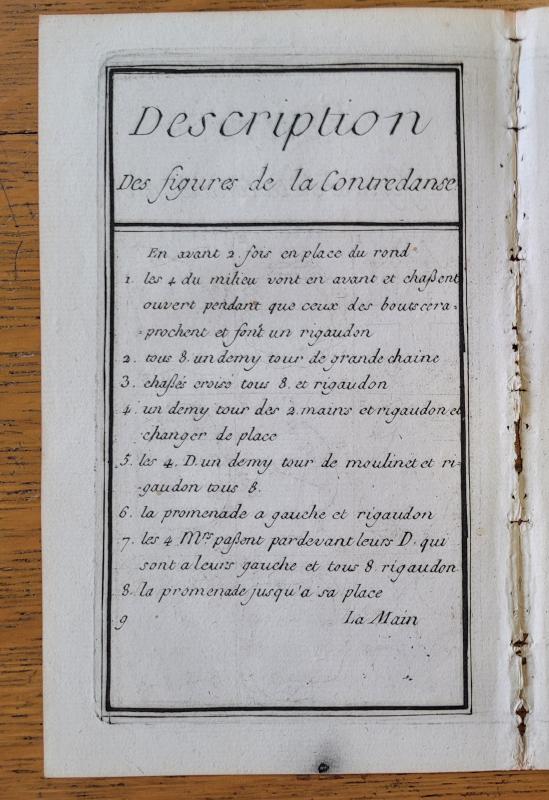 Description
Des figures de la Contredanse
En avant 2. fois en place du rond
1. les 4 du milieu vont en avant et chaßent
ouvert pendant que ceux des bouts cera=
=prochent et font un rigaudon
2. tous 8. un demy tour de grande chaine
3. chaßés croisé tous 8. et rigaudon
4. un demy tour des 2. mains et rigaudon et
changer de place
5. les 4. D. un demy tour de moulinet et ri=
=gaudon tous 8.
6. la promenade a gauche et rigaudon
7. les 4 Mrs paßent pardevant leurs D. qui
sont a leurs gauche et tous 8. rigaudon
8. la promenade jusqu'a sa place
9 La Main